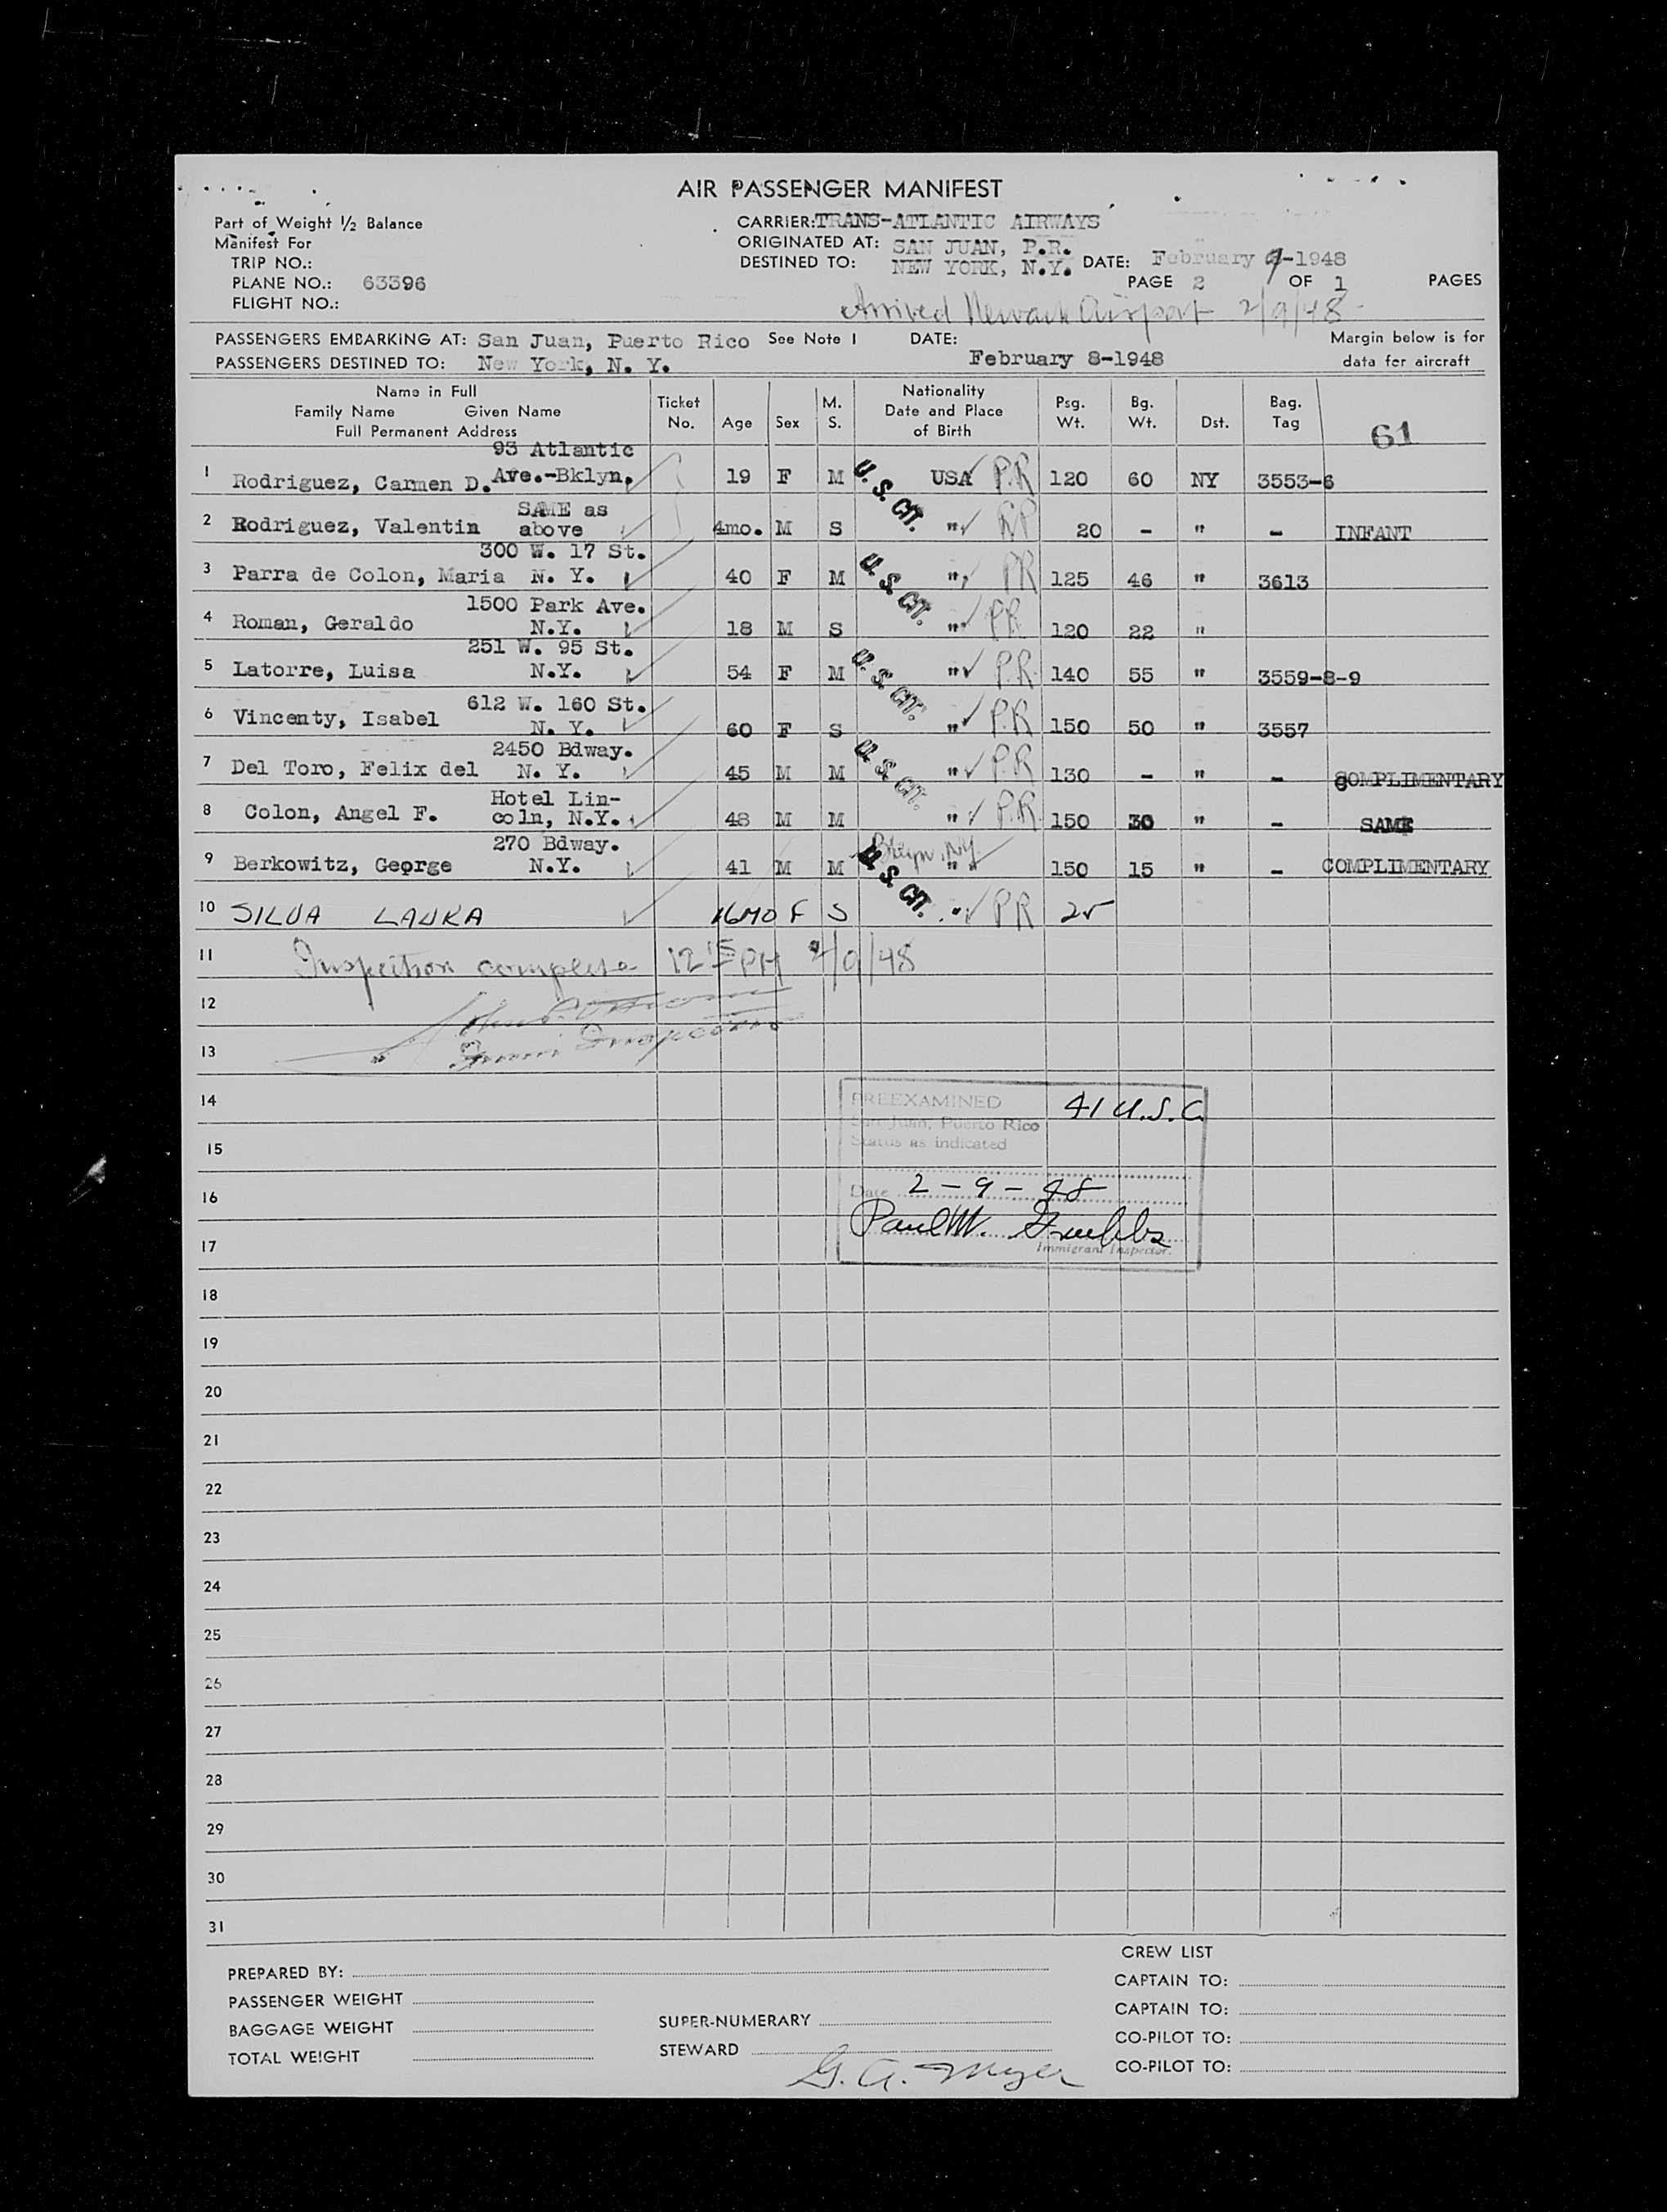 AIR PASSENGER MANIFEST
Part of Weight 1/2 Balance
Manifest For
TRIP NO.:
PLANE NO.: 63396
FLIGHT NO.:
CARRIER: TRANS-ATLANTIC AIRWAYS
ORIGINATED AT: SAN JUAN, P.R.
DESTINED TO: NEW YORK, N.Y. DATE: February 9-1948
PAGE 2 OF 1 PAGES
Arrived Newark Airport 2/9/48
PASSENGERS EMBARKING AT: San Juan, Puerto Rico See Note 1 DATE: February 8-1948
PASSENGERS DESTINED TO: New York, N. Y.
Margin below is for
data for aircraft
Name in Full
Family Name Given Name
Full Permanent Address
Ticket No. Age Sex M. S. Nationality Date and Place of Birth Psg. Wt. Bg. Wt. Dst. Bag. Tag 61
93 Atlantic
1 Rodriguez, Carmen D. Ave.-Bklyn, 19 F M U. S. CIT. USA PR 120 60 NY 3553-6
SAME as
2 Rodriguez, Valentin above 4mo. M S " PR 20 - " - INFANT
300 W. 17 St.
3 Parra de Colon, Maria N. Y. 40 F M U. S. CIT. " PR 125 46 " 3613
1500 Park Ave.
4 Roman, Geraldo N.Y. 18 M S " PR 120 22 "
251 W. 95 St.
5 Latorre, Luisa N.Y. 54 F M U. S. CIT. " P.R. 140 55 " 3559-8-9
612 W. 160 St.
6 Vincenty, Isabel N. Y. 60 F S " P.R 150 50 " 3557
2450 Bdway.
7 Del Toro, Felix del N. Y. 45 M M U. S. CIT. " P.R 130 - " - COMPLIMENTARY
Hotel Lin-
8 Colon, Angel F. coln, N.Y. 48 M M " P.R 150 30 " - SAME
270 Bdway. Bklyn, NY
9 Berkowitz, George N.Y. 41 M M U. S. CIT. " " 150 15 " - COMPLIMENTARY
10 SILVA LAURA 16MO F S " PR 25
11 Inspection complete 12 15 PM 2/9/48
12
13 Immi Inspector
14 PREEXAMINED 41 U.S.C.
San Juan, Puerto Rico
15 Status as indicated
16 Date 2-9-48
Paul W. Grubbs
17 Immigrant Inspector.
18
19
20
21
22
23
24
25
26
27
28
29
30
31
PREPARED BY:
PASSENGER WEIGHT
BAGGAGE WEIGHT
TOTAL WEIGHT
SUPER-NUMERARY
STEWARD
G. A. Myer
CREW LIST
CAPTAIN TO:
CAPTAIN TO:
CO-PILOT TO:
CO-PILOT TO: